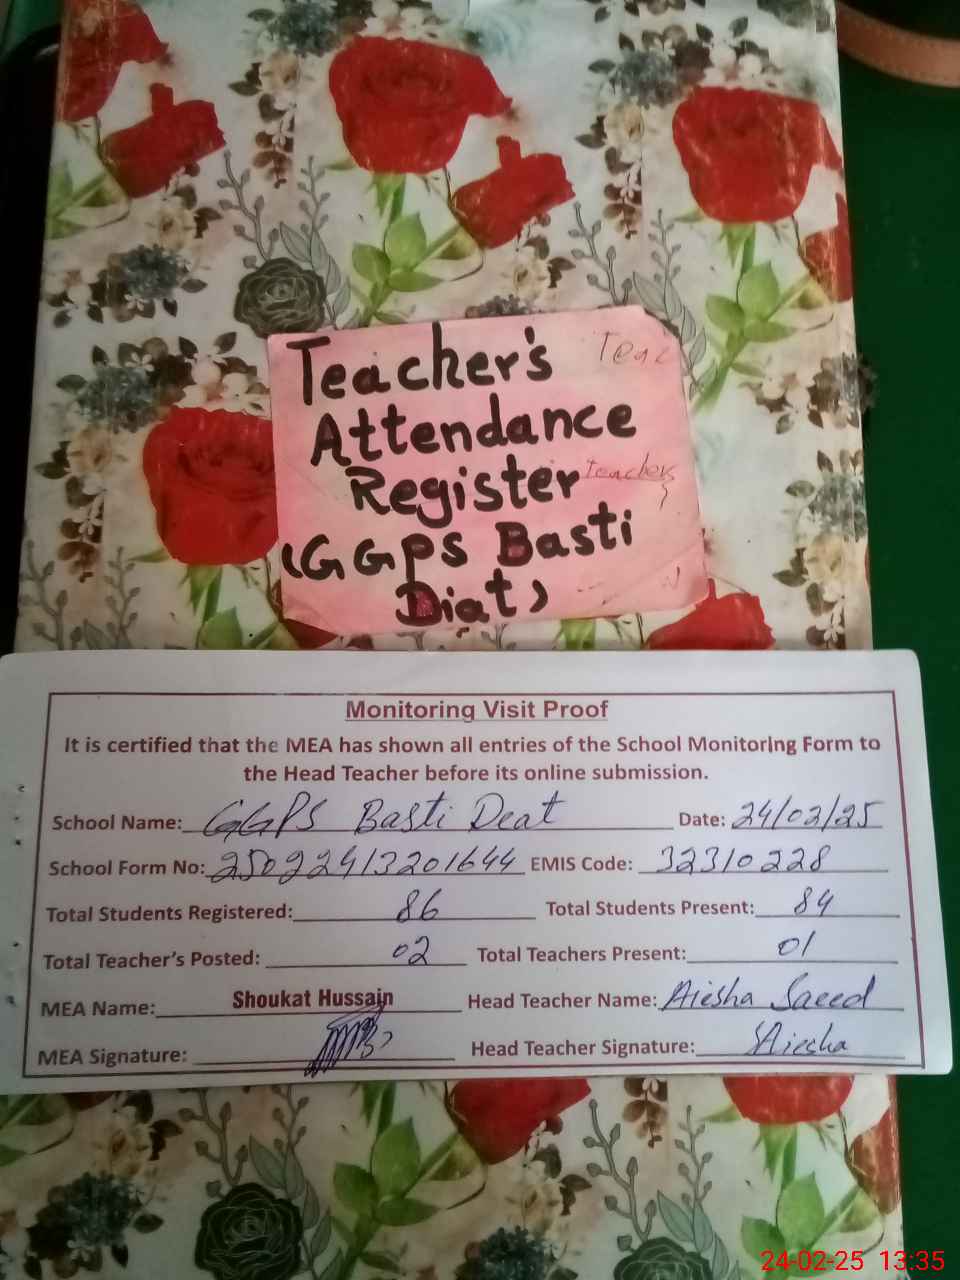 Teacher's
Teac
Attendance
Register
Teachers
(GGPS Basti
Diat)
Monitoring Visit Proof
It is certified that the MEA has shown all entries of the School Monitoring Form to
the Head Teacher before its online submission.
School Name: GGPS Basti Deat Date: 24/02/25
School Form No: 25022413201644 EMIS Code: 32310228
Total Students Registered: 86 Total Students Present: 84
Total Teacher's Posted: 02 Total Teachers Present: 01
MEA Name: Shoukat Hussain Head Teacher Name: Aiesha Saeed
MEA Signature: Head Teacher Signature: Aiesha
24-02-25 13:35